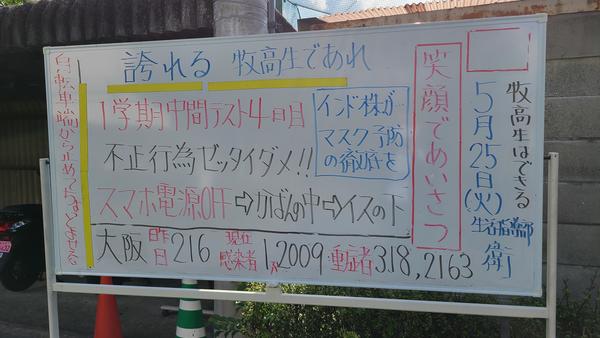 誇れる 牧高生であれ
牧高生はできる
5月25日(火)
生活指導部
衛
笑顔であいさつ
1学期中間テスト4日目
インド株が
マスク予防
の徹底を
不正行為ゼッタイダメ!!
スマホ電源OFF⇨かばんの中⇨イスの下
大阪 昨日216 現在感染者1万2009 重症者318,2163